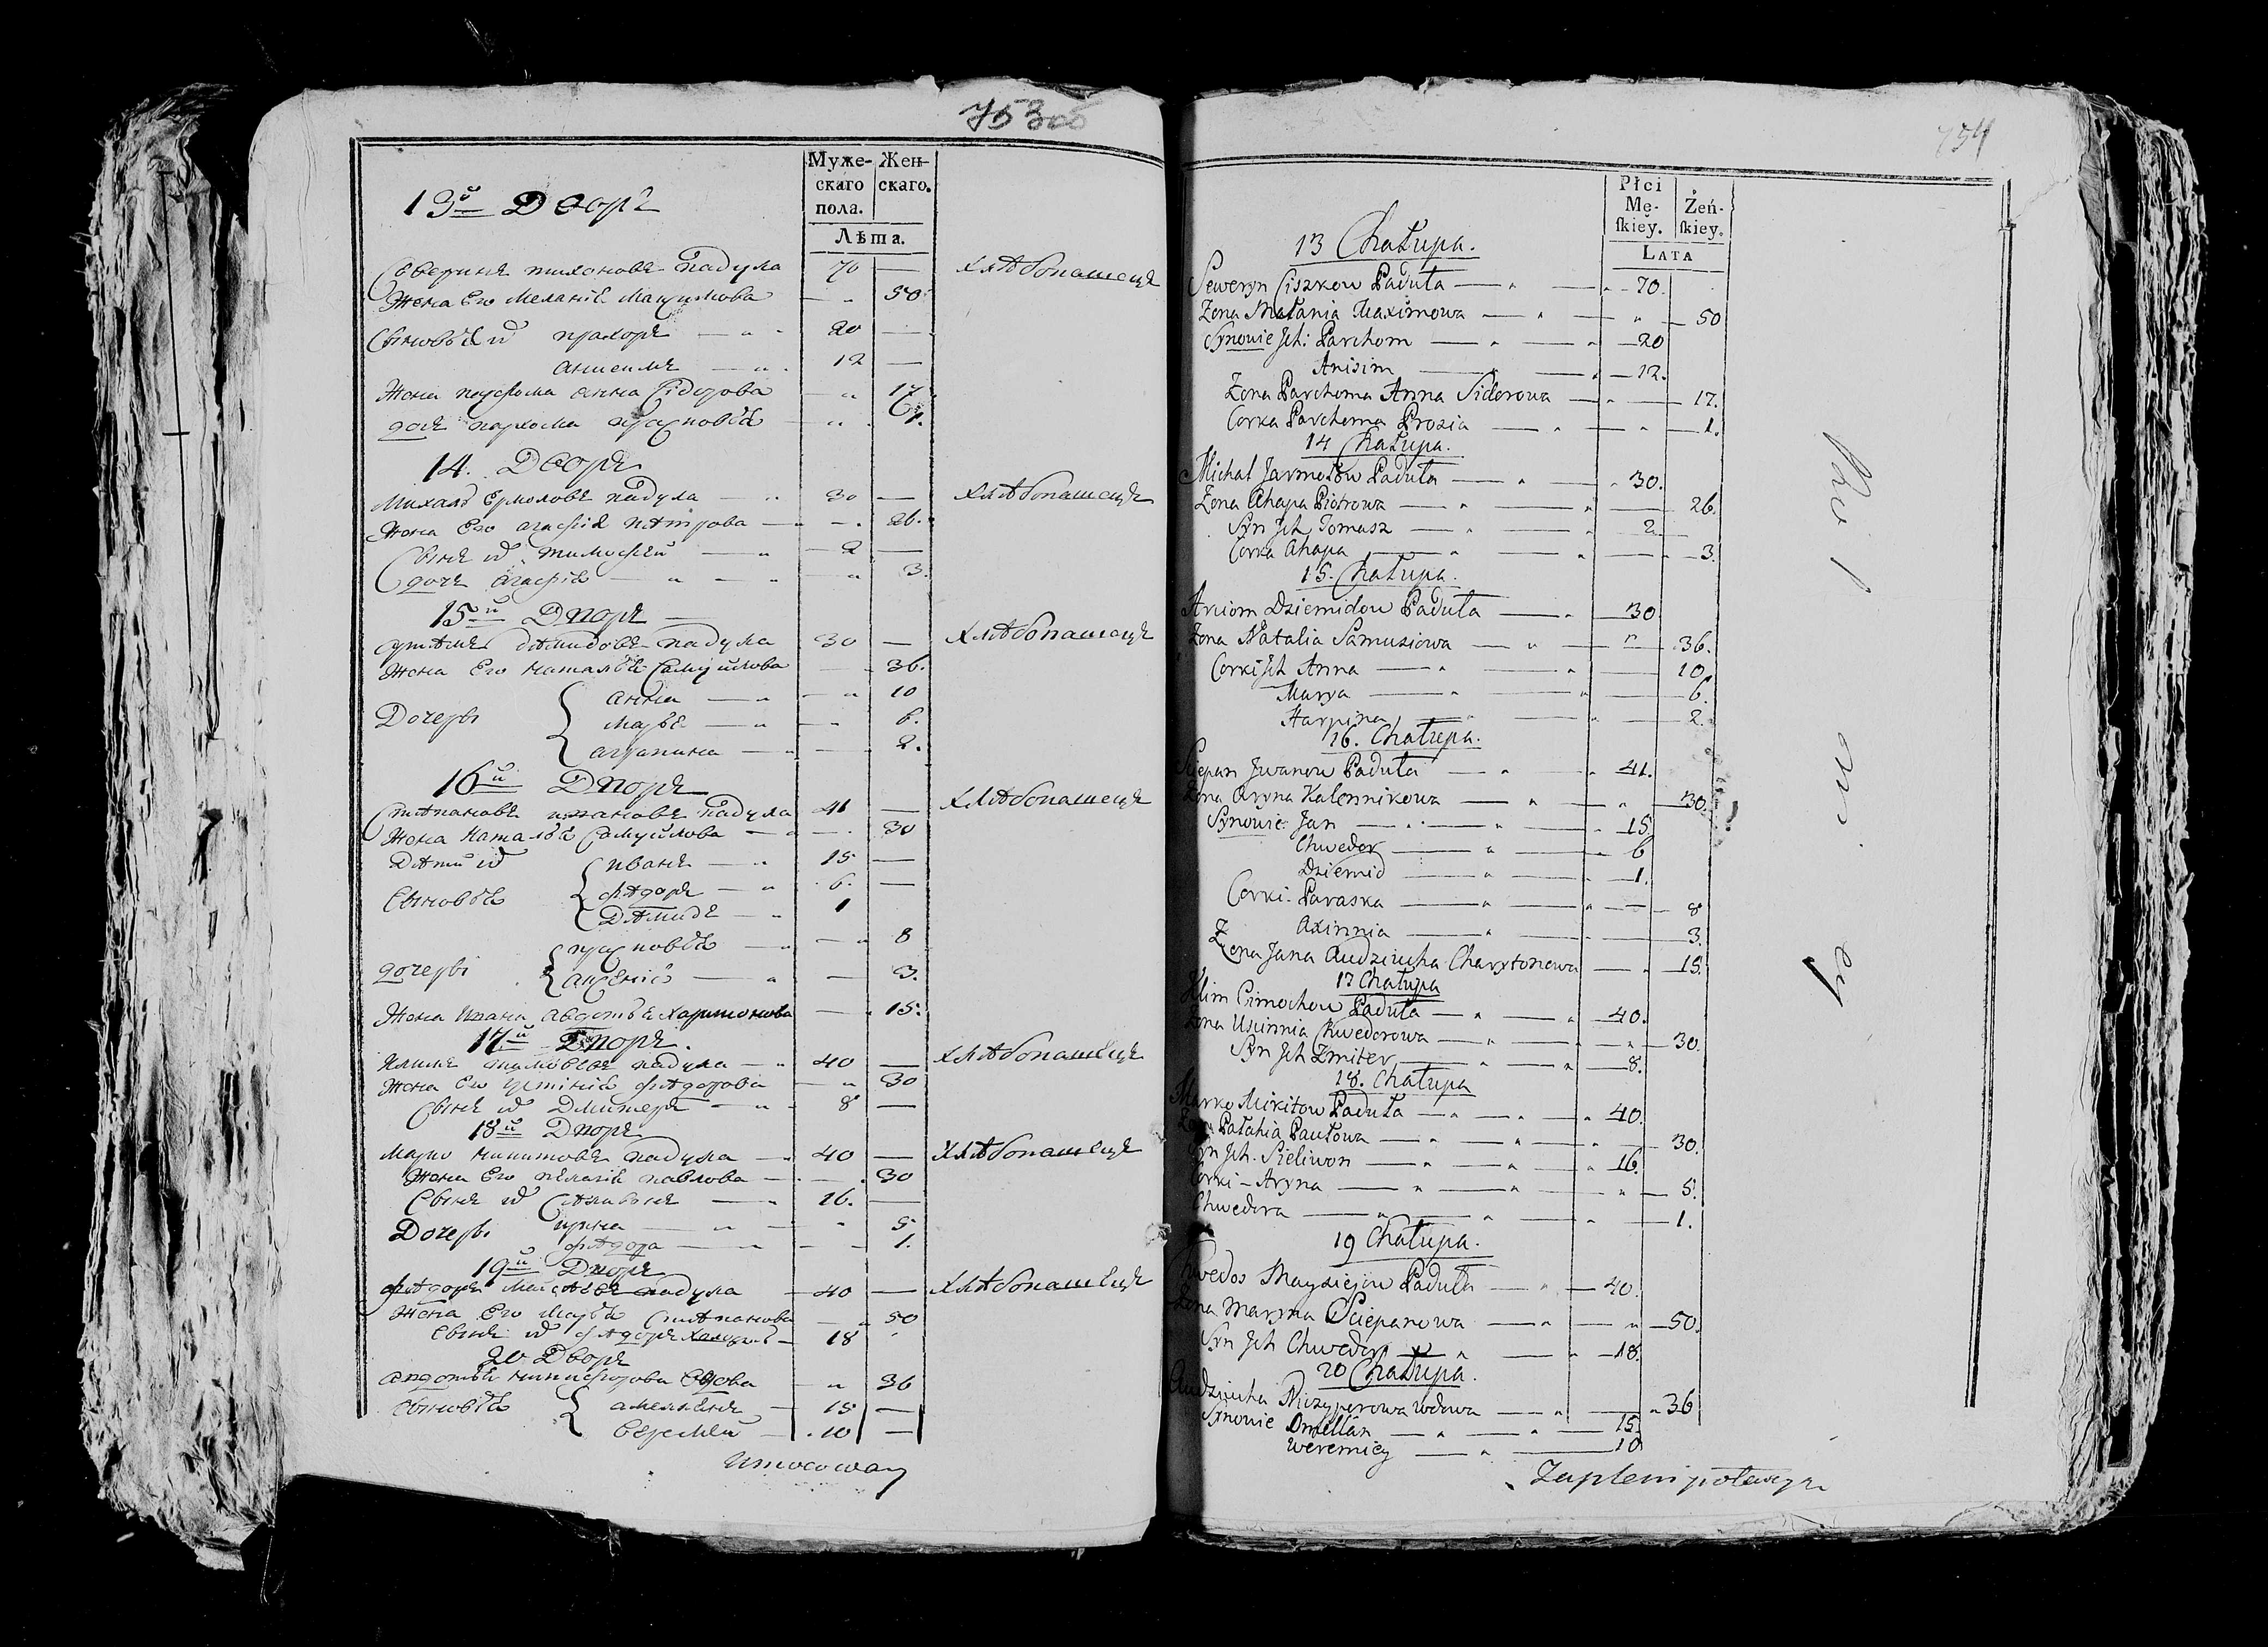 753
13й Дворъ
Муже-
скаго
пола.
Жен-
скаго.
Лѣта.
Северинъ тихоновъ падула 70 — хлѣбопашецъ
Жена Его Меланія Махимова — " 50.
Сыновья ихъ прахоръ — " 20 —
анисимъ — " 12 —
Жена пархома анна Сидорова — " 17.
дочь пархома прасковья — " 1.
14. Дворъ
Михалъ Ермоловъ падула — " 30 — хлѣбопашецъ
Жена Его агафія пѣтрова — — 26.
Сынъ ихъ тимофѣй — " 2 —
дочь агафія — " — " 3.
15й Дворъ
артѣмъ дѣмидовъ падула 30 — хлѣбопашецъ
Жена Его наталья Самуйлова — 36.
Дочерьи анна — " — " 10
марья — " — 6.
аграпина — " — 2.
16й Дворъ
Стѣпановъ ивановъ падула 41 — хлѣбопашецъ
Жена наталья Самуйлова — — 30
Дѣти ихъ иванъ — " 15 —
Сыновья фѣдоръ — " 6. —
Дѣмидъ — " 1
прасковья — " 8
дочерьи аксѣнія — " — 3.
Жена ивана авдотья харитонова — 15.
17й Дворъ.
климъ тимовѣевъ падула — " 40 — хлѣбопашецъ
Жена Его устинія фѣдорова — " 30
Сынъ ихъ Дмитеръ — " 8 —
18й Дворъ
марко никитовъ падула — 40 — хлѣбопашецъ
Жена Его пелагія павлова — 30
Сынъ ихъ Сѣливонъ — 16. —
Дочерьи ирина — " — " 5
фѣдора — " — 1.
19й Дворъ
фѣдоръ Мойсѣевъ падула — 40 — хлѣбопашецъ
Жена Его марья Стѣпанова — 50
Сынъ ихъ фѣдоръ — 18
20 Дворъ
авдотья никифорова вдова — " 36
Сыновья амельянъ — 15 —
Веремѣй — 10 —
754
Płci
Mę-
skiey.
Żeń-
skiey.
LATA
13 Chałupa.
Seweryn Ciszkow Paduła — " — 70.
Zona Małania Maximowa — " — " — 50
Synowie Jch: Parchom — " — " 20
Anisim — " — 12.
Zona Parchoma Anna Siderowa — " — 17.
Corka Parchoma Prosia — " — " — 1.
14 Chałupa.
Michał Jarmołow Paduła — " — 30.
Zona Ahapa Piotrowa — " — " — 26.
Syn Jch Tomasz — " — 2
Corka Ahapa — " — " — 3.
15. Chałupa.
Arciom Dziemidow Paduła — " 30
Zona Natalia Samusiowa — " — " 36.
Corki Jch Anna — " — " — 10
Marya — " — " — 6.
Harpina — " — " — 2.
16. Chałupa.
Sciepan Jwanow Paduła — " — " 41.
Zona Aryna Kalennikowa — " — " — 30.
Synowie: Jan — " — " — 15
Chwedor — " — 6
Dziemid — " — 1.
Corki - Paraska — " — " — 8
Axinnia — " — 3.
Zona Jana Audziucha Charytonowa — " 15.
17 Chałupa
Klim Cimochow Paduła — " — " 40.
Zona Uscinnia Chwedorowa — " — " — 30.
Syn Jch Zmiter — " — " — 8.
18. Chałupa
Marko Mikitow Paduła — " — " 40.
Zona Pałahia Paułowa — " — " — 30.
Syn Jch. Sieliwon — " — " — 16.
Corki - Aryna — " — " — " — 5.
Chwedora — " — " — 1.
19 Chałupa.
Chwedos Mayziejow Paduła — " — 40.
Zona Maryna Sciepanowa — " — " — 50.
Syn Jch Chwedor — " — 18.
20 Chałupa.
Audziucha Niczyperowa wdowa — " — " 36
Synowie Omellan — " — " — 15.
weremiey — " — 10